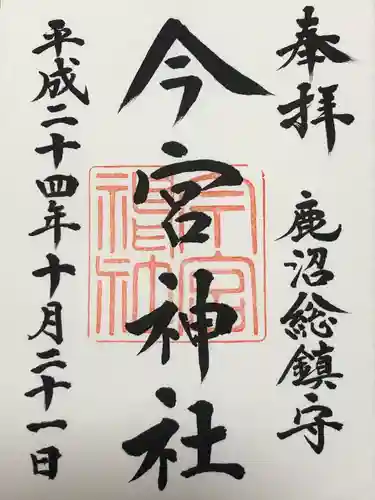 奉拝
鹿沼総鎮守
今宮神社
今宮
神社
平成二十四年十月二十一日